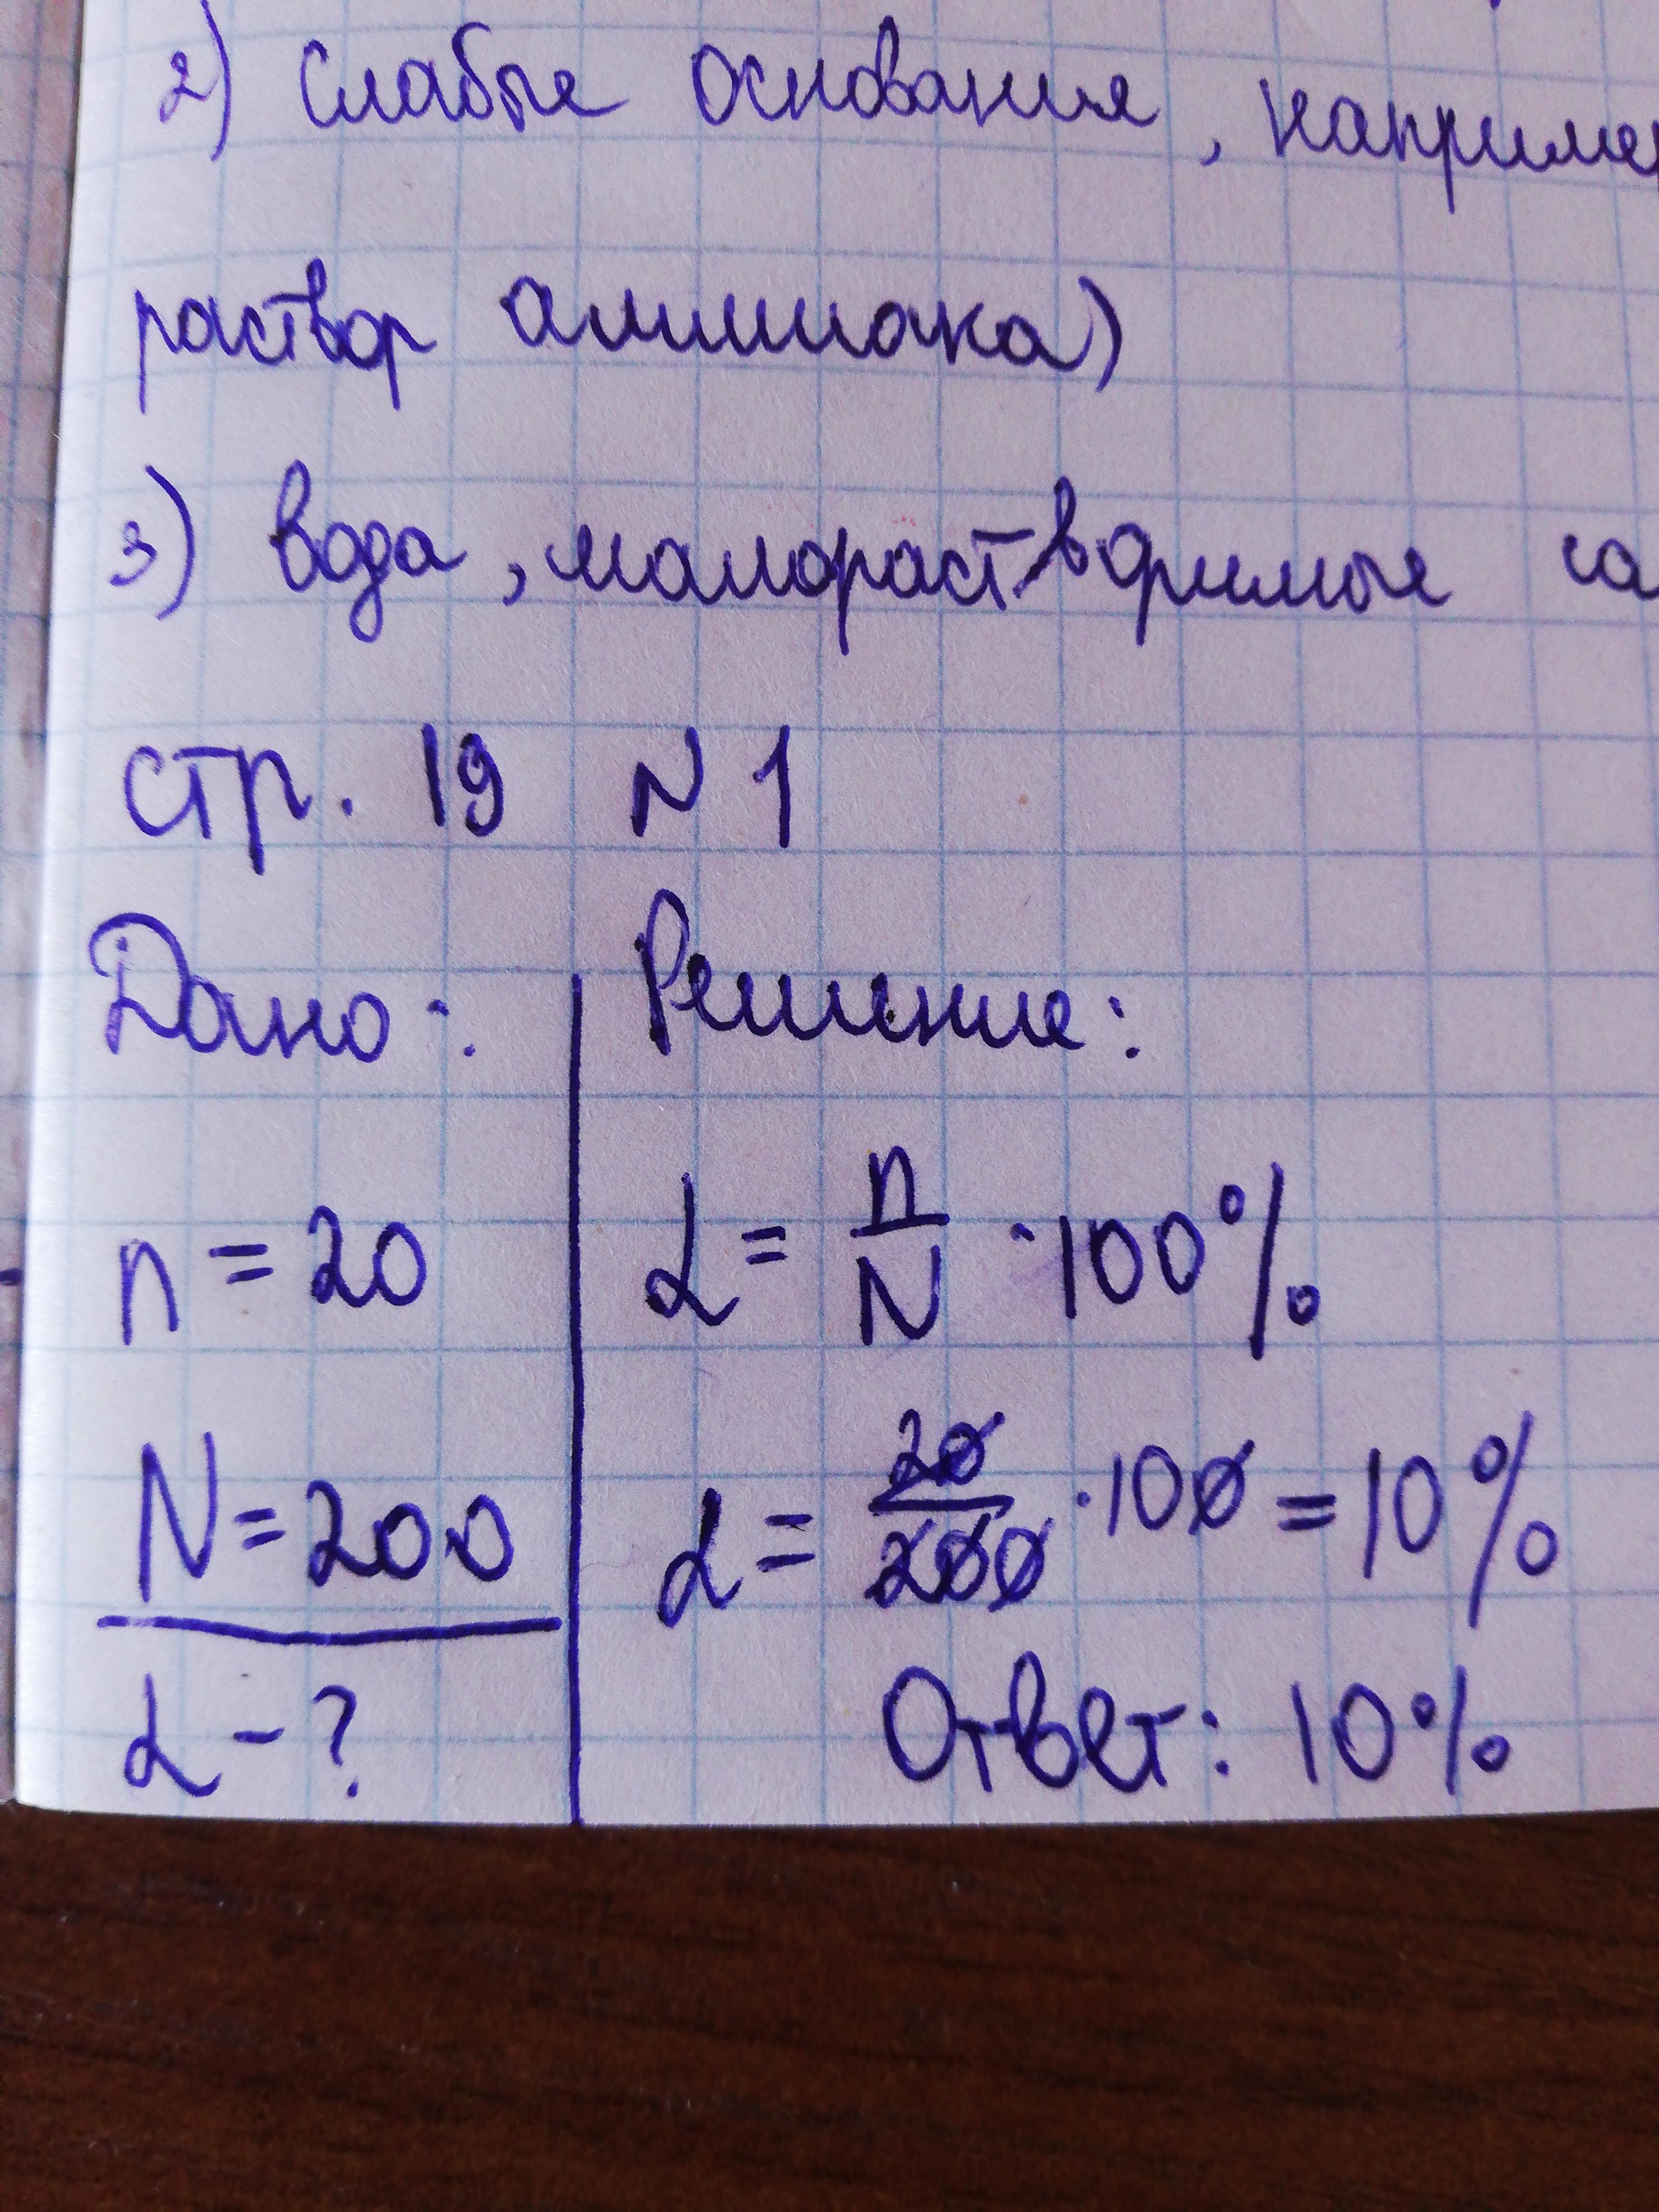 2) слабые основания, например
раствор аммиака)
3) вода, малорастворимые
стр. 19 N 1
Дано: Решение:
n = 20 α = n/N · 100%
N = 200 α = 20/200 · 100 = 10%
α - ? Ответ: 10%